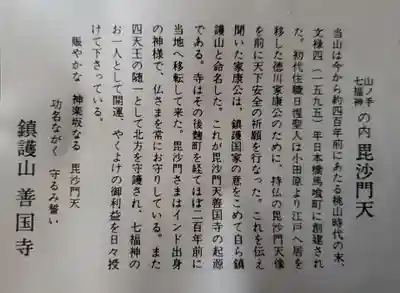 山ノ手
七福神
の内 毘沙門天
当山は今から約四百年前にあたる桃山時代の末、
文禄四(一五九五)年日本橋馬喰町に創建され
た。初代住職日惺聖人は小田原より江戸へ居を
移した徳川家康公のために、持仏の毘沙門天像
を前に天下安全の祈願を行なった。これを伝え
聞いた家康公は、鎮護国家の意をこめて自ら鎮
護山と命名した。これが毘沙門天善国寺の起源
である。寺はその後麹町を経てほぼ二百年前に
当地へ移転して来た。毘沙門さまはインド出身
の神様で、仏さまを常にお守りしている。また
四天王の随一として北方を守護され、七福神の
お一人として開運、やくよけの御利益を日々授
けて下さっている。
賑やかな 神楽坂なる 毘沙門天
功名ながく 守るみ誓い
鎮護山 善国寺